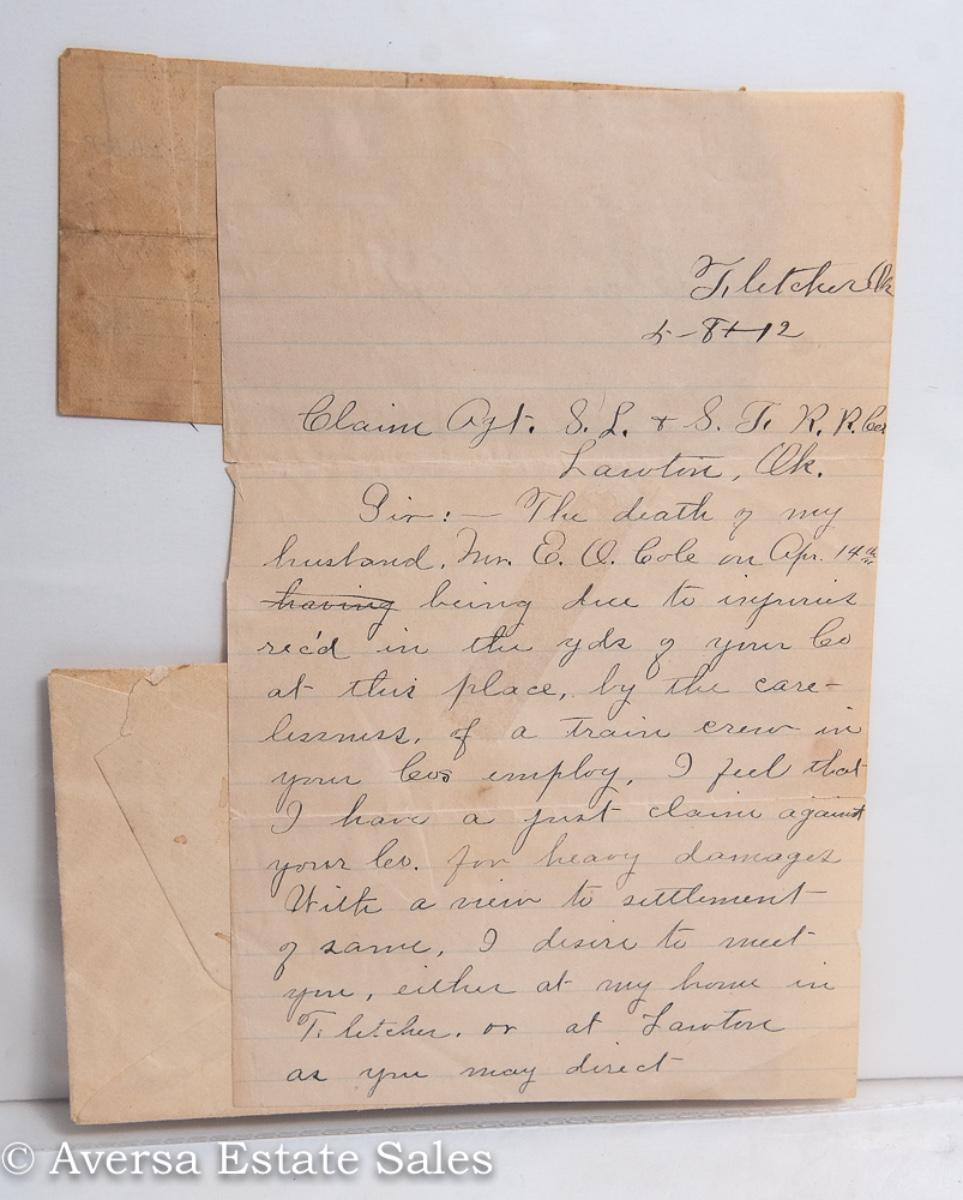 Fletcher Ok
5-8-12
Claim Agt. S. L. & S. F. R. R. Co.
Lawton, Ok.
Sir:— The death of my
husband, Mr. E. O. Cole on Apr. 14th
having being due to injuries
rec'd in the yds of your Co
at this place, by the care-
lessness, of a train crew in
your Cos employ, I feel that
I have a just claim against
your Co. for heavy damages
With a view to settlement
of same, I desire to meet
you, either at my home in
Fletcher, or at Lawton
as you may direct
© Aversa Estate Sales